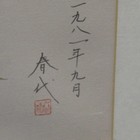 一九八一年九月
春代